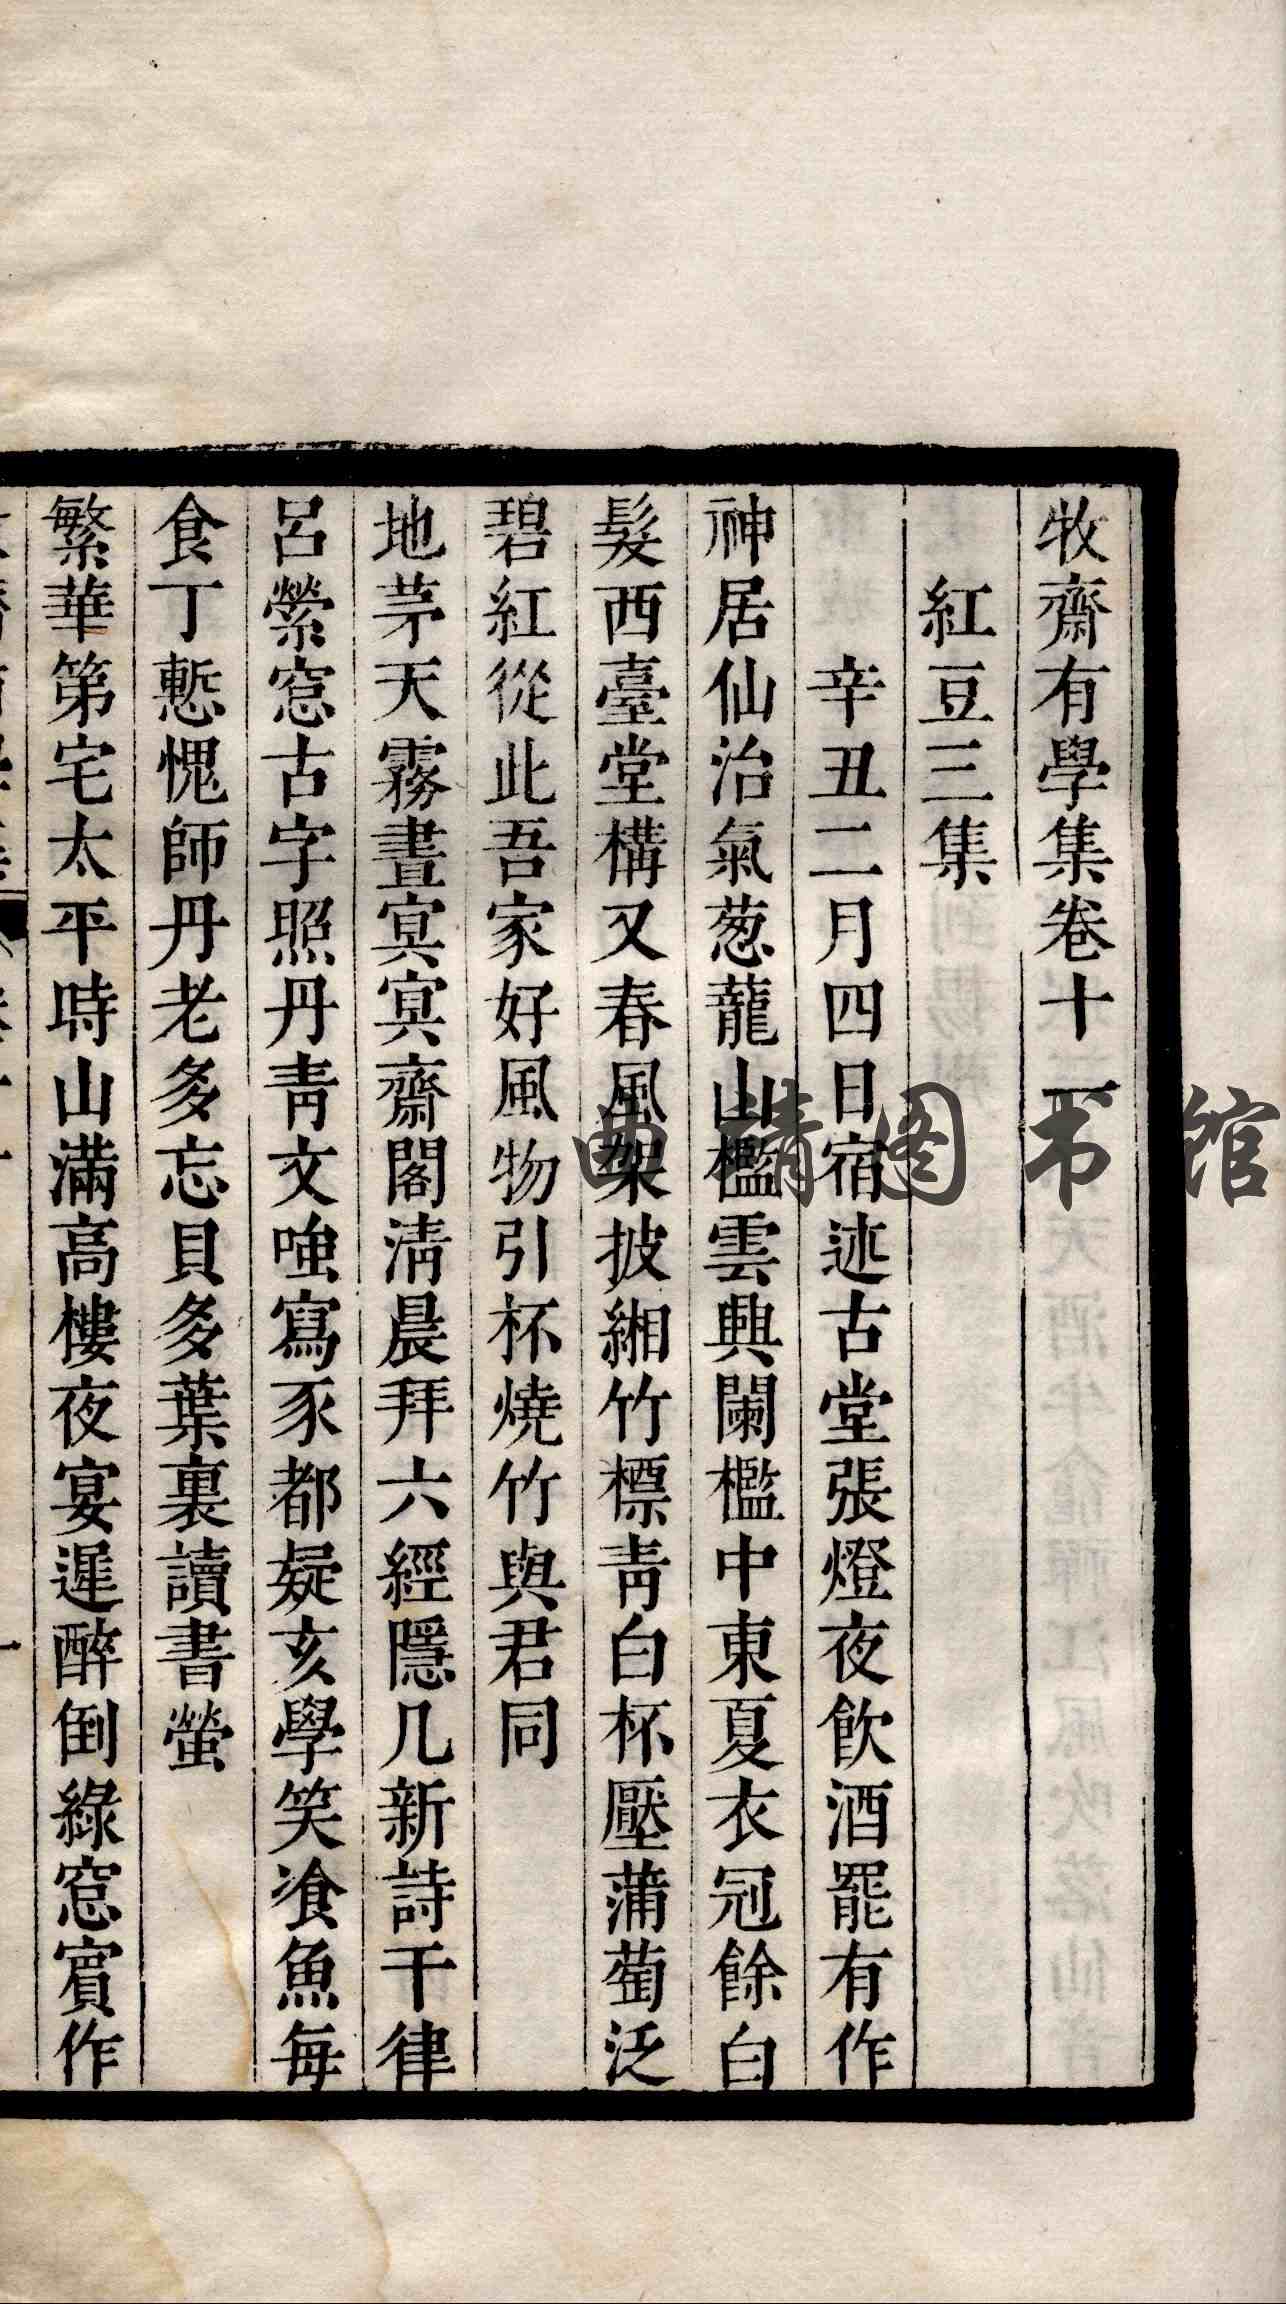 牧齋有學集卷十一
紅豆三集
辛丑二月四日宿述古堂張燈夜飲酒罷有作
神居仙治氣葱蘢山檻雲興闌檻中東夏衣冠餘白
髮西臺堂構又春風架披緗竹標青白杯壓蒲萄泛
碧紅從此吾家好風物引杯燒竹與君同
地茅天霧晝冥冥齋閣清晨拜六經隱几新詩千律
呂縈窓古字照丹青文嗤寫豕都疑亥學笑飡魚每
食丁慙愧師丹老多忘貝多葉裏讀書螢
繁華第宅太平時山滿高樓夜宴遲醉倒綠窓賓作
曲靖图书馆